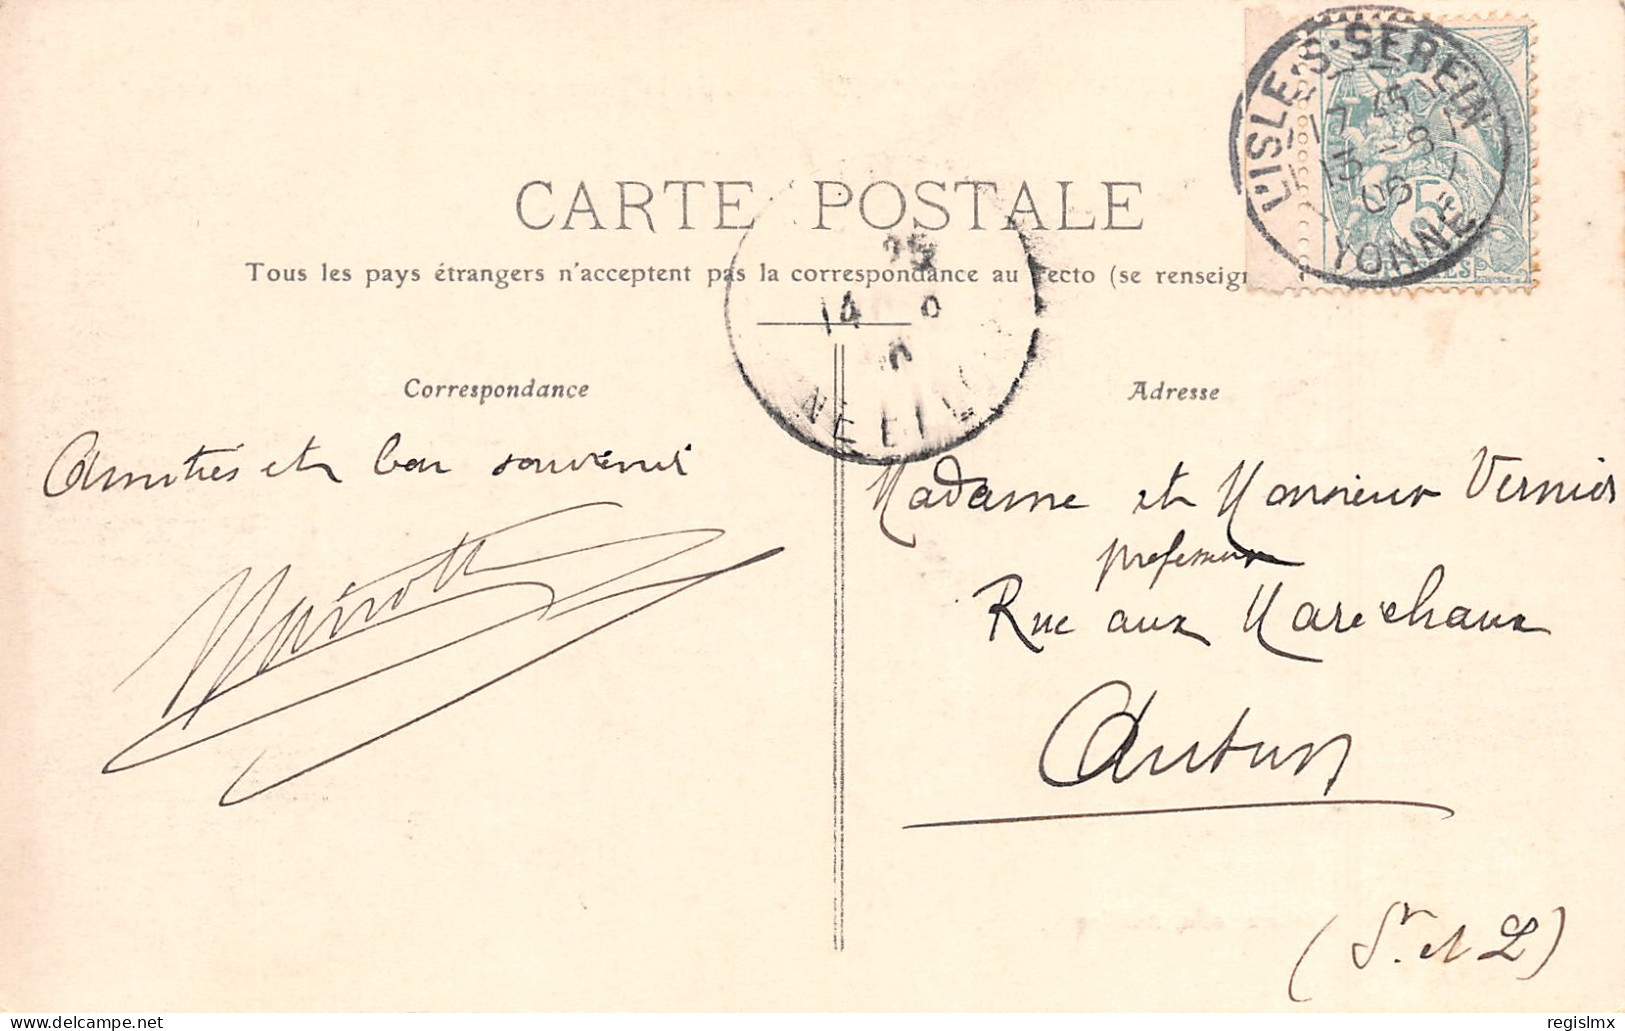 CARTE POSTALE
Tous les pays étrangers n'acceptent pas la correspondance au recto (se renseign
L'ISLE-S-SEREIN
YONNE
5
14
Correspondance
Adresse
Amitiés et bon souvenir
Madame et Monsieur Vernier
professeur
Rue aux Maréchaux
Autun
(S. et L)
delcampe.net
regislmx